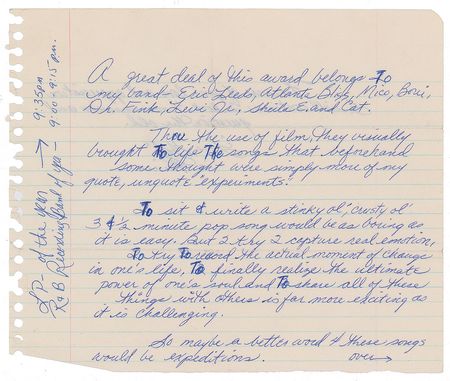 A great deal of this award belongs To
my band Eric Leeds, Atlanta Bliss, Mico, Boni,
Dr. Fink, Levi Jr., Sheila E. and Cat.
Thru the use of film, they visually
brought To life The songs that beforehand
some thought were simply more of my
quote, unquote "experiments."
To sit & write a stinky ol', crusty ol'
3 & ½ minute pop song would be as boring as
it is easy. But 2 try 2 capture real emotion,
To try To record the actual moment of change
in one's life, To finally realize the ultimate
power of one's soul and To share all of these
things with others is far more exciting as
it is challenging.
So maybe a better word 4 these songs
would be expeditions.
over →
LP - of the year → 9:35pm
R&B Recording Band of year - 9:00-9:15 pm.